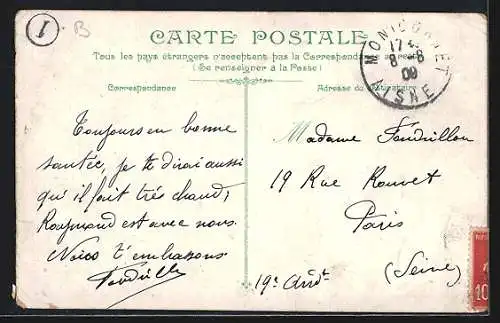 1
B
CARTE POSTALE
Tous les pays étrangers n'acceptent pas la Correspondance au recto
(Se renseigner à la Poste)
Correspondance
Adresse du Destinataire
MONTCORNET
17
8-8
09
AISNE
Toujours en bonne
santée, je te dirai aussi
qu'il fait trés chaud,
Raymond est avec nous.
t'embrassons
Madame
19 Rue Rouvet
Paris
19e Arrdt
(Seine)
10